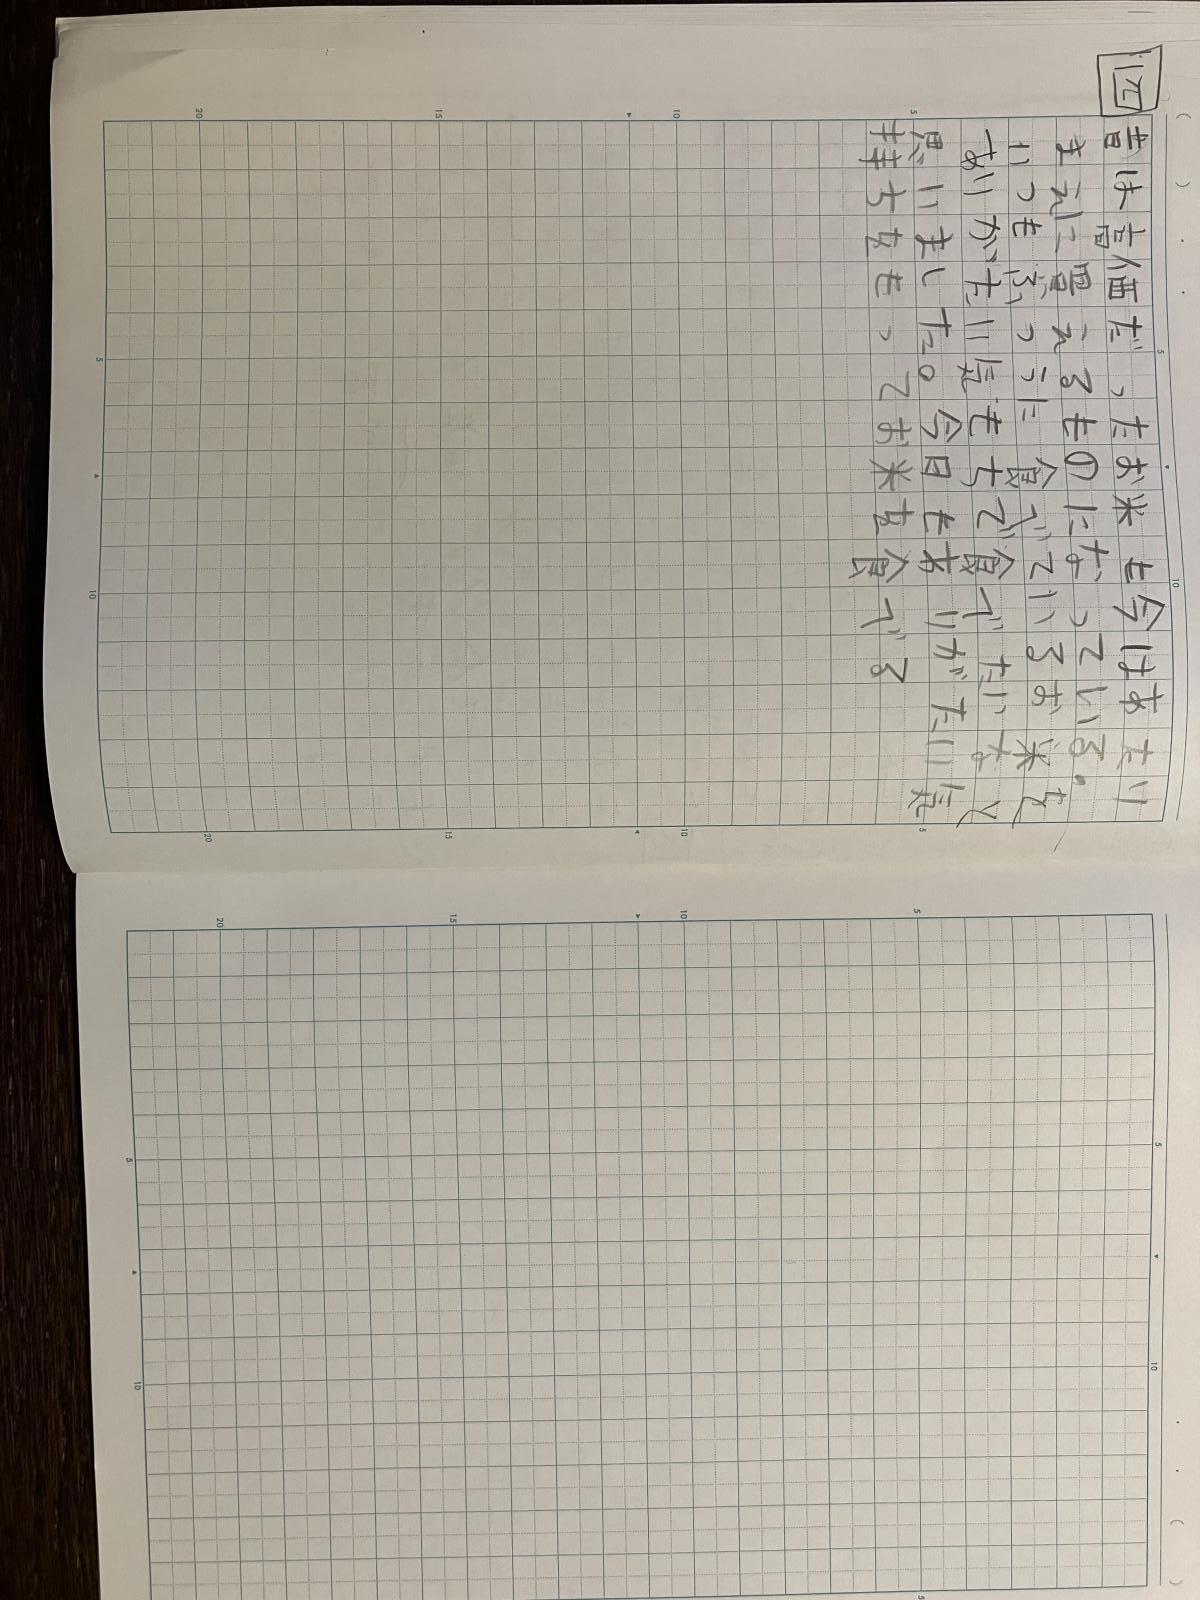 昔は高価だったお米も今はあたり
まえに買えるものになっている。
いつもふつうに食べているお米を
ありがたい気もちで食べたいなと
思いました。今日もありがたい気
持ちをもってお米を食べる
5
10
15
20
5
10
5
10
5
10
15
20
5
10
15
20
5
10
5
10
5